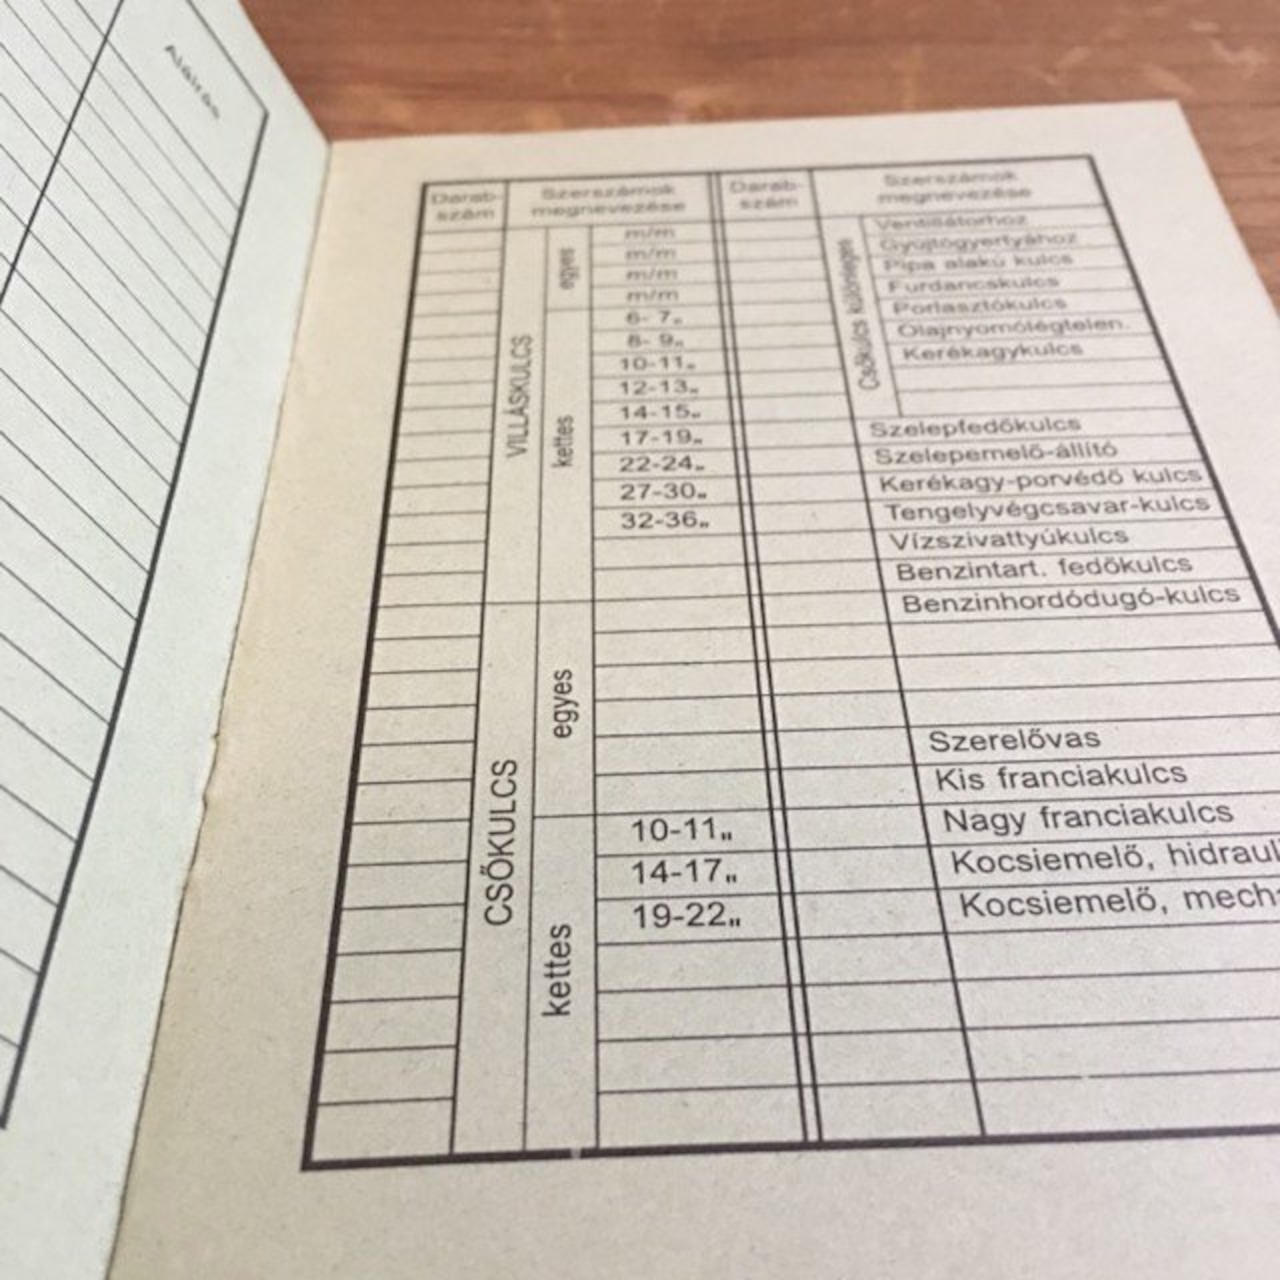 Aláírás
Darab-
szám
Szerszámok
megnevezése
Darab-
szám
Szerszámok
megnevezése
VILLÁSKULCS
egyes
m/m
m/m
m/m
m/m
kettes
6- 7„
8- 9„
10-11„
12-13„
14-15„
17-19„
22-24„
27-30„
32-36„
CSŐKULCS
egyes
kettes
10-11„
14-17„
19-22„
Csőkulcs különleges
Ventillátorhoz
Gyujtógyertyához
Pipa alakú kulcs
Furdancskulcs
Porlasztókulcs
Olajnyomólégtelen.
Kerékagykulcs
Szelepfedőkulcs
Szelepemelő-állító
Kerékagy-porvédő kulcs
Tengelyvégcsavar-kulcs
Vízszivattyúkulcs
Benzintart. fedőkulcs
Benzinhordódugó-kulcs
Szerelővas
Kis franciakulcs
Nagy franciakulcs
Kocsiemelő, hidrauli
Kocsiemelő, mech